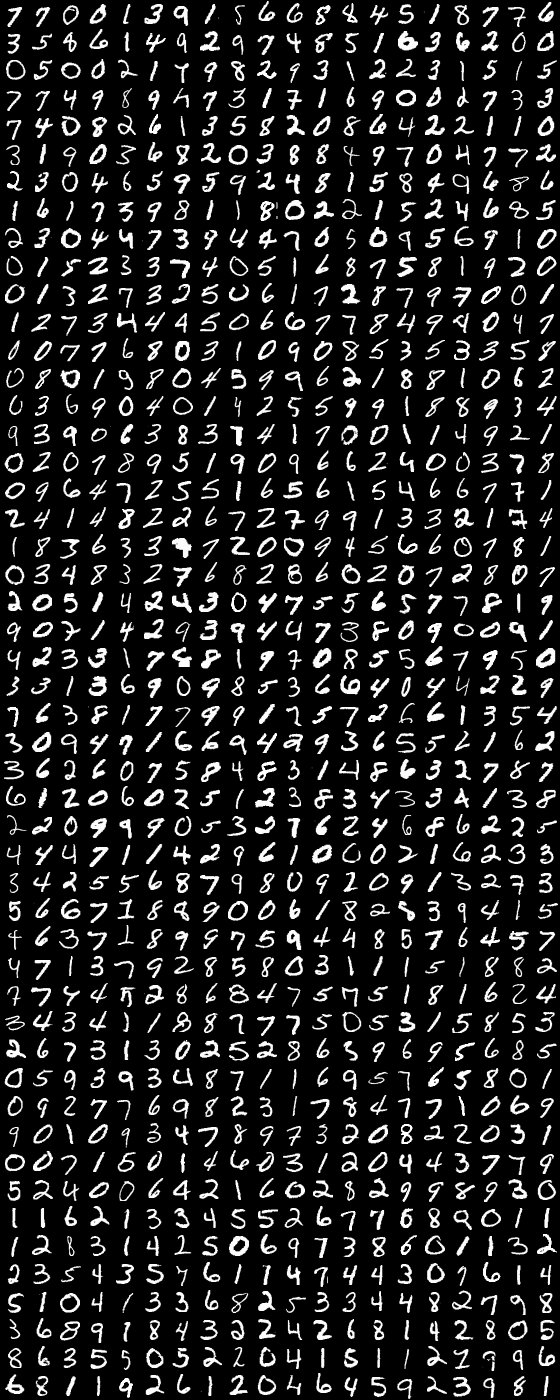 7 7 0 0 1 3 9 1 5 6 6 8 8 4 5 1 8 7 7 6
3 5 8 6 1 4 9 2 9 7 4 8 5 1 6 3 6 2 0 0
0 5 0 0 2 1 7 9 8 2 9 3 1 2 2 3 1 5 1 5
7 7 4 9 8 9 4 7 3 1 7 1 6 9 0 0 2 7 3 3
7 4 0 8 2 6 1 3 5 8 2 0 8 6 4 2 2 1 1 0
3 1 9 0 3 6 8 2 0 3 8 8 4 9 7 0 4 7 7 2
2 3 0 4 6 5 9 5 9 2 4 8 1 5 8 4 9 6 8 6
1 6 1 7 3 9 8 1 1 8 0 2 2 2 1 5 2 4 6 8 5
2 3 0 4 4 7 3 9 4 4 7 0 5 0 9 5 6 9 1 0
0 1 5 2 3 3 7 4 0 5 1 6 8 7 5 8 1 9 2 0
0 1 3 2 7 3 2 5 0 6 1 7 2 8 7 9 7 0 0 1
1 2 7 3 4 4 4 5 0 6 6 7 7 8 4 9 4 0 4 7
0 0 7 7 6 8 0 3 1 0 9 0 8 5 3 5 3 3 5 8
0 8 0 1 9 8 0 4 5 9 9 6 2 1 8 8 1 0 6 2
6 3 6 9 0 4 0 1 4 2 5 5 9 9 1 8 8 9 3 4
9 3 9 0 6 3 8 3 7 4 1 7 0 0 1 1 4 9 2 1
0 2 0 7 8 9 5 1 9 0 9 6 6 2 4 0 0 3 7 8
0 9 6 4 7 2 5 5 1 6 5 6 1 5 4 6 6 7 7 1
2 4 1 4 8 2 2 6 7 2 7 9 9 1 3 3 2 1 7 4
1 8 3 6 3 3 9 7 2 0 0 9 4 5 6 6 0 7 8 1
0 3 4 8 3 2 7 6 8 2 8 6 0 2 0 7 2 8 0 7
2 0 5 1 4 2 4 3 0 4 7 5 5 6 5 7 7 8 1 9
9 0 7 1 4 2 9 3 9 4 4 7 3 8 0 9 0 0 9 1
4 2 3 3 1 7 6 8 1 9 7 0 8 5 5 6 7 9 5 0
3 3 1 3 6 9 0 9 8 5 3 6 6 4 0 4 4 2 2 9
7 6 3 8 1 7 7 9 9 1 2 5 7 2 6 6 1 3 5 4
3 0 9 4 7 1 6 6 9 4 2 9 3 6 5 5 2 1 6 2
3 6 2 6 0 7 5 8 4 8 3 1 4 8 6 3 2 7 8 7
6 1 2 0 6 0 2 5 1 2 3 8 3 4 3 3 4 1 3 8
2 2 0 9 9 9 0 5 3 3 7 6 2 4 6 8 6 2 2 5
4 4 4 7 1 1 4 2 9 6 1 0 0 0 2 1 6 2 3 3
3 4 2 5 5 6 8 7 9 8 0 9 2 0 9 1 3 2 7 3
5 6 6 7 1 8 8 9 0 0 6 1 8 2 8 3 9 4 1 5
4 6 3 7 1 8 9 9 7 5 9 4 4 8 5 7 6 4 5 7
4 7 1 3 7 9 2 8 5 8 0 3 1 1 1 5 1 8 8 2
7 7 4 4 5 2 8 6 8 4 7 5 7 5 1 8 1 6 2 4
3 4 3 4 1 1 8 8 7 7 7 5 0 5 3 1 5 8 5 3
2 6 7 3 1 3 0 2 5 2 8 6 3 9 6 9 5 6 8 5
0 5 9 3 9 3 4 8 7 1 1 6 9 5 7 6 5 8 0 1
0 9 2 7 7 6 9 8 2 3 1 7 8 4 7 7 1 0 6 9
9 0 1 0 9 3 4 7 8 9 7 3 2 0 8 2 2 0 3 1
0 0 7 1 5 0 1 4 6 0 3 1 2 0 4 4 3 7 7 9
5 2 4 0 0 6 4 2 1 6 0 2 8 2 9 9 8 9 3 0
1 1 6 2 1 3 3 4 5 5 2 6 7 7 6 8 9 0 1 1
1 2 8 3 1 4 2 5 0 6 9 7 3 8 6 0 1 1 3 2
2 3 5 4 3 5 7 6 1 7 4 7 4 4 3 0 7 6 1 4
5 1 0 4 1 3 3 6 8 2 5 3 3 4 4 8 2 7 9 8
3 6 8 9 1 8 4 3 2 2 4 2 6 8 1 4 2 8 0 5
8 6 3 5 5 0 5 2 2 0 4 1 5 1 1 2 7 9 9 6
6 8 1 1 9 2 6 1 2 0 4 6 4 5 9 2 3 9 8 1